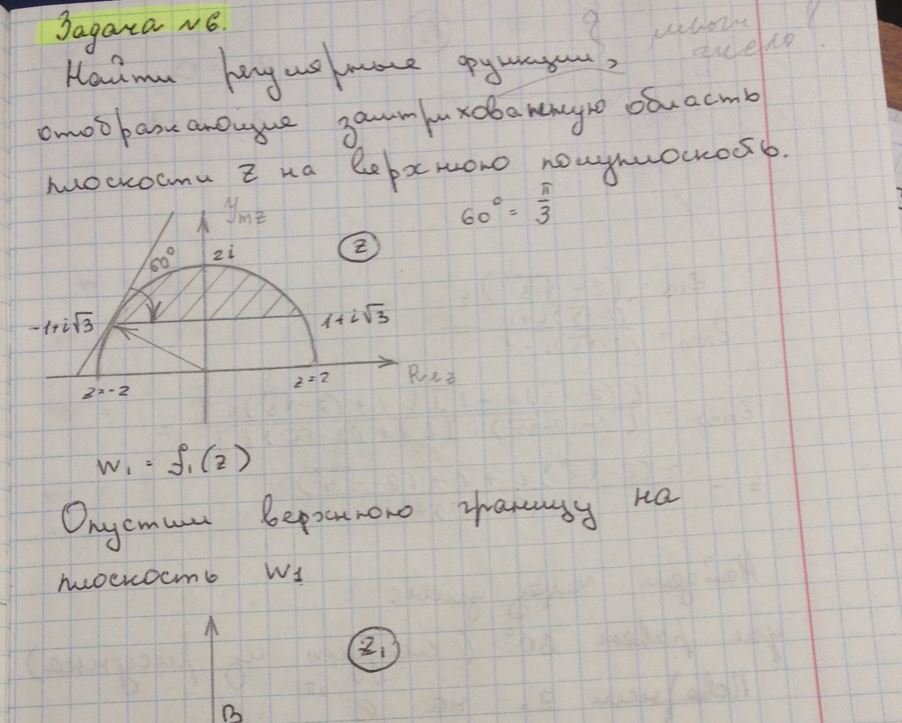 Задача №6.
Найти регулярные функции,
отображающие заштрихованную область
плоскости Z на верхнюю полуплоскость.
60° = π/3
Ymz
60°
2i
Z
-1+i√3
1+i√3
z=-2
z=2
Rez
W₁ = f₁(z)
Опустим верхнюю границу на
плоскость W₁
Z₁
B